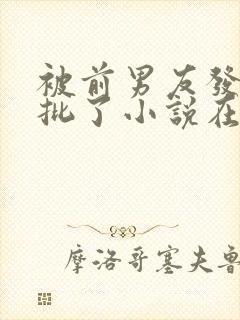 被前男友發
批了小說在
摩洛哥塞夫魯